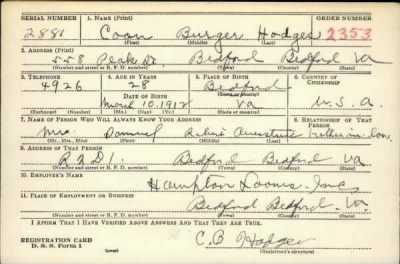 SERIAL NUMBER 1. NAME (Print) ORDER NUMBER
2881 Coon Burger Hodges 2353
(First) (Middle) (Last)
2. ADDRESS (Print)
558 Peak St. Bedford Bedford Va
(Number and street or R. F. D. number) (Town) (County) (State)
3. TELEPHONE 4. AGE IN YEARS 5. PLACE OF BIRTH 6. COUNTRY OF CITIZENSHIP
4926 28 Bedford
DATE OF BIRTH (Town or county)
March 10, 1912 Va U.S.A.
(Exchange) (Number) (Mo.) (Day) (Yr.) (State or country)
7. NAME OF PERSON WHO WILL ALWAYS KNOW YOUR ADDRESS 8. RELATIONSHIP OF THAT PERSON
Mrs. Samuel
(Mr., Mrs., Miss) (First) (Middle) (Last)
9. ADDRESS OF THAT PERSON
Bedford Bedford Va
(Number and street or R. F. D. number) (Town) (County) (State)
10. EMPLOYER'S NAME
Hampton Looms, Inc.
11. PLACE OF EMPLOYMENT OR BUSINESS
Bedford Bedford Va
(Number and street or R. F. D. number) (Town) (County) (State)
I AFFIRM THAT I HAVE VERIFIED ABOVE ANSWERS AND THAT THEY ARE TRUE.
REGISTRATION CARD C.B. Hodges
D. S. S. Form 1 (over) (Registrant's signature)